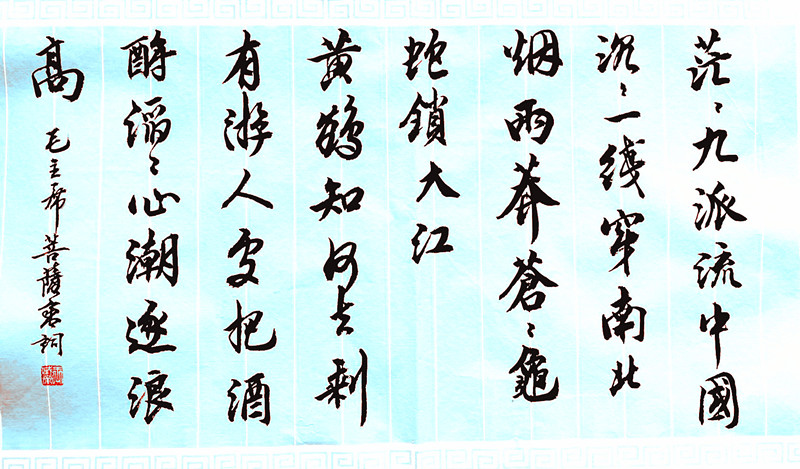 茫〻九派流中國
沉〻一綫穿南北
烟雨莽蒼〻龜
蛇鎖大江
黄鶴知何去剩
有游人處把酒
酹滔〻心潮逐浪
高
毛主席菩薩蛮詞